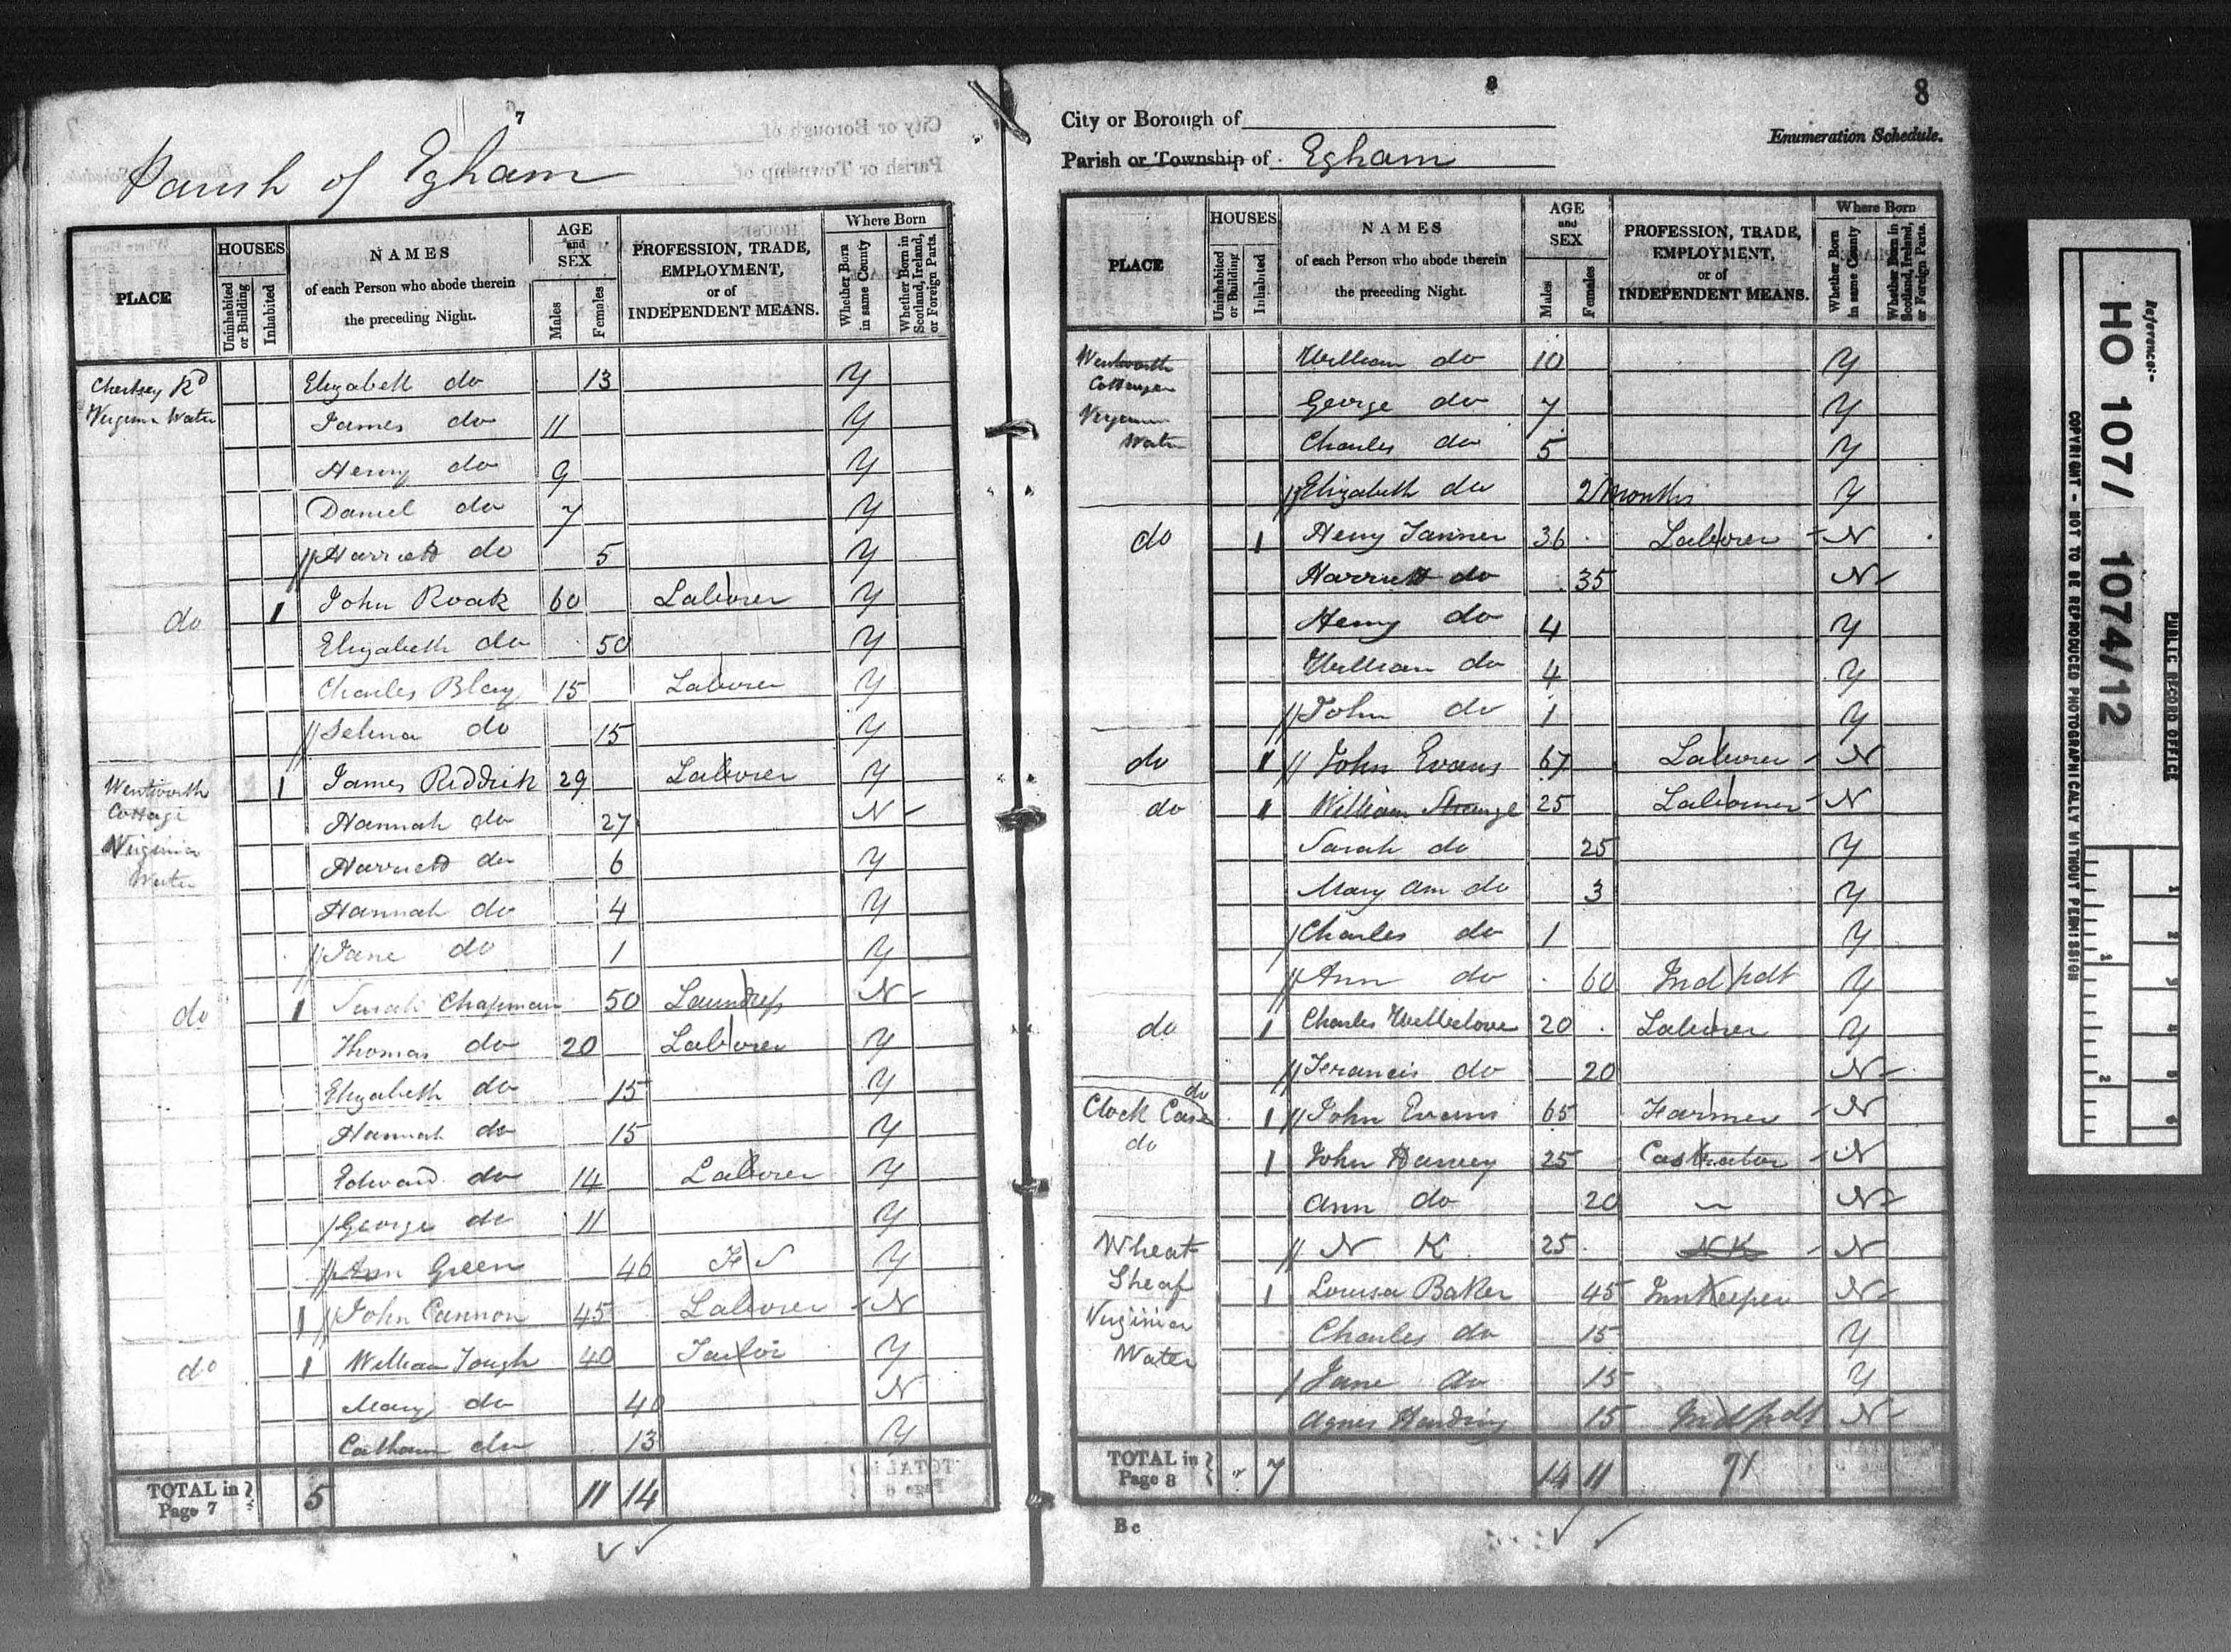 7
Parish of Egham
PLACE
HOUSES
Uninhabited or Building
Inhabited
NAMES
of each Person who abode therein
the preceding Night.
AGE
and
SEX
Males
Females
PROFESSION, TRADE,
EMPLOYMENT,
or of
INDEPENDENT MEANS.
Where Born
Whether Born in same County
Whether Born in Scotland, Ireland, or Foreign Parts.
Chertsey Rd Elizabeth do 13 Y
Virginia Water James do 11 Y
Henry do 9 Y
Daniel do 7 Y
// Harriett do 5 Y
do 1 John Roak 60 Laborer Y
Elizabeth do 50 Y
Charles Blay 15 Laborer Y
// Selina do 15 Y
Wentworth 1 James Riddick 29 Laborer Y
Cottage Hannah do 27 N -
Virginia Harriett do 6 Y
Water
Hannah do 4 Y
// Jane do 1 Y
do 1 Sarah Chapman 50 Laundress N -
Thomas do 20 Laborer Y
Elizabeth do 15 Y
Hannah do 15 Y
Edward do 14 Laborer Y
/ George do 11 Y
// Ann Green 46 F S Y
1 // John Cannon 45 Laborer - N
do 1 William Tough 40 Tailor Y
Mary do 40 N
do 13 Y
TOTAL in
Page 7 5 11 14
8
8
City or Borough of
Enumeration Schedule.
Parish or Township of Egham
PLACE
HOUSES
Uninhabited or Building
Inhabited
NAMES
of each Person who abode therein
the preceding Night.
AGE
and
SEX
Males
Females
PROFESSION, TRADE,
EMPLOYMENT,
or of
INDEPENDENT MEANS.
Where Born
Whether Born in same County
Whether Born in Scotland, Ireland, or Foreign Parts.
Wentworth William do 10 Y
Cottages
Virginia George do 7 Y
Water Charles do 5 Y
// Elizabeth do 2 months Y
do 1 Henry Tanner 36 Laborer - N
Harriett do 35 N -
Henry do 4 Y
William do 4 Y
// John do 1 Y
do 1 // John Evans 67 Laborer - N
do 1 William Strange 25 Labourer - N
Sarah do 25 Y
Mary Ann do 3 Y
/ Charles do 1 Y
// Ann do 60 Indpdt Y
do 1 Charles Wellbelove 20 Laborer Y
// Francis do 20 N -
do
Clock Case 1 // John Evans 65 Farmer - N
do 1 John Harvey 25 Castrator - N
Ann do 20 - N -
Wheat // N K 25 NK - N
Sheaf 1 Louisa Baker 45 Innkeeper N -
Virginia Charles do 15 Y
Water / Jane do 15 Y
Agnes Harding 15 Indpdt N -
TOTAL in
Page 8 7 14 11
Bc
Reference:-
HO 107/ 1074/12
PUBLIC RECORD OFFICE
COPYRIGHT - NOT TO BE REPRODUCED PHOTOGRAPHICALLY WITHOUT PERMISSION
1
2
3
4
5
6
1
2